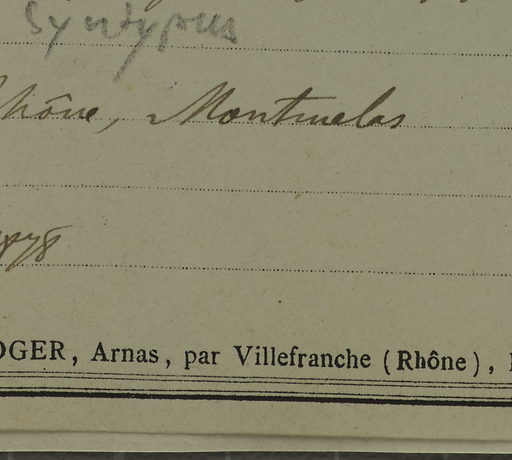 Syntypus
Rhône, Montmelas
OGER, Arnas, par Villefranche (Rhône),